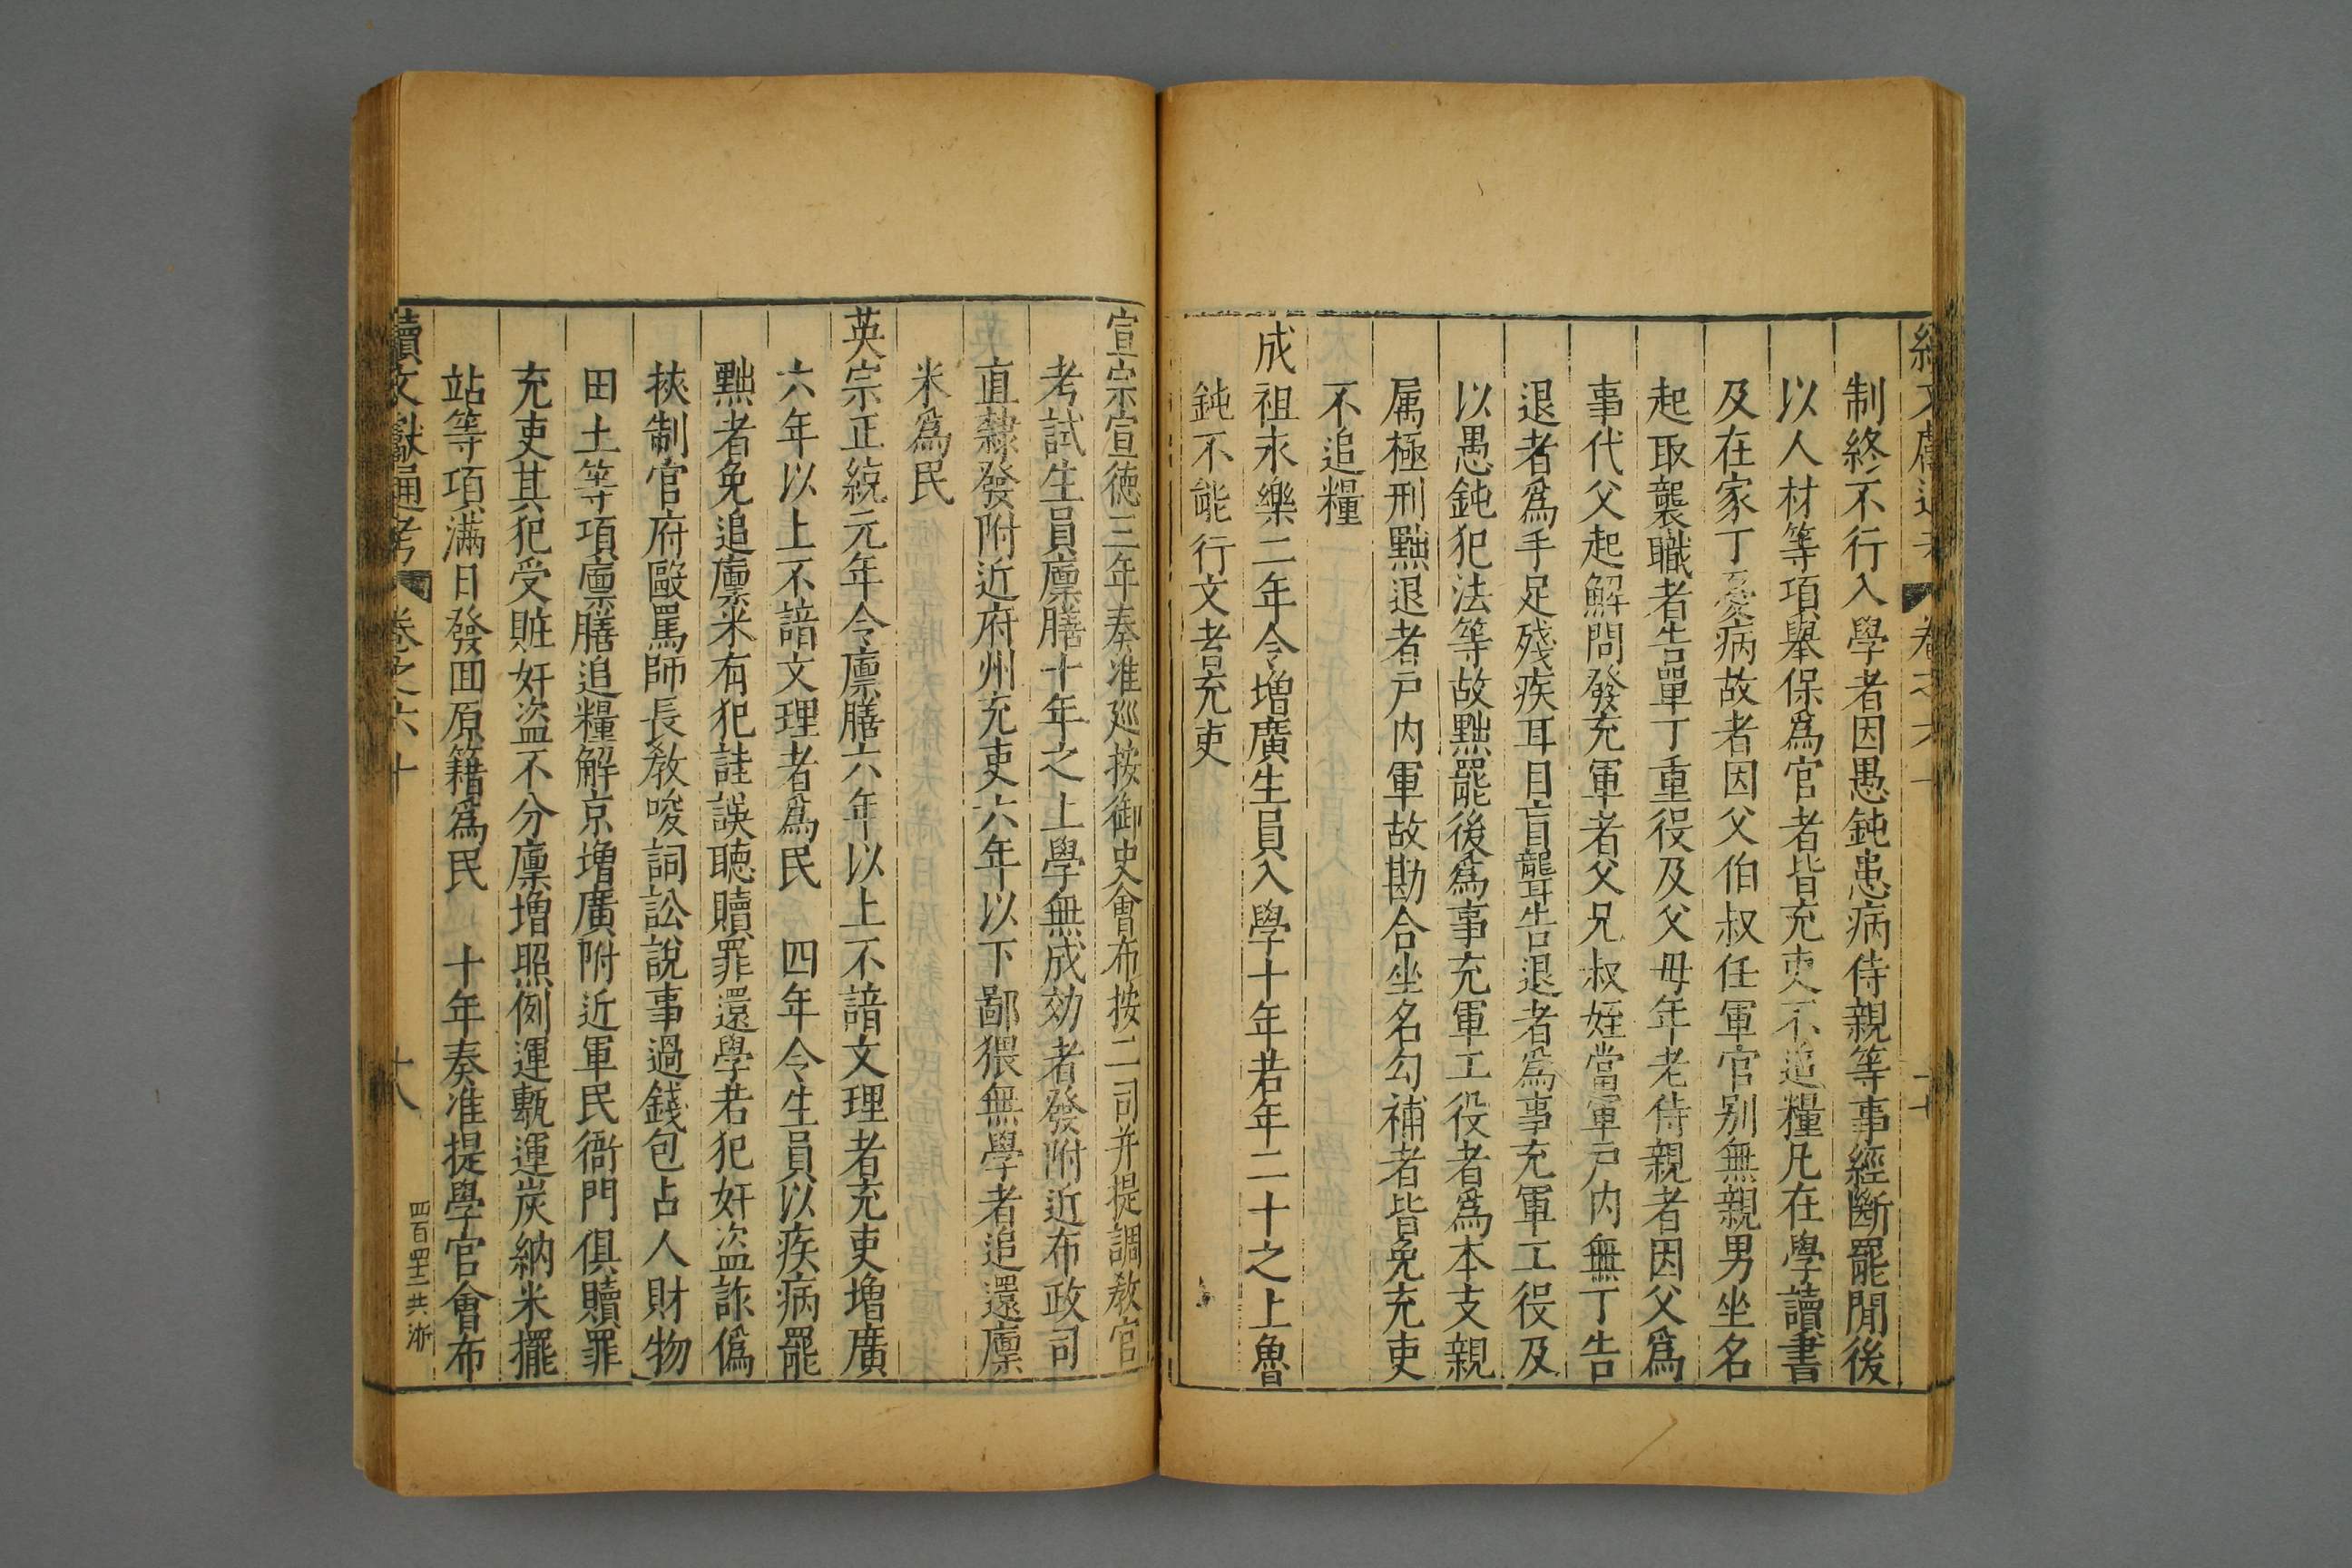 續文獻通考 卷之六十 十七
制終不行入學者因愚鈍患病侍親等事經斷罷閒後
以人材等項舉保爲官者皆充吏不追糧凡在學讀書
及在家丁憂病故者因父伯叔任軍官别無親男坐名
起取襲職者告單丁重役及父母年老侍親者因父爲
事代父起解問發充軍者父兄叔姪當軍戸内無丁告
退者爲手足殘疾耳目盲聾告退者爲事充軍工役及
以愚鈍犯法等故黜罷後爲事充軍工役者爲本支親
属極刑黜退者戸内軍故勘合坐名勾補者皆免充吏
不追糧
成祖永樂二年令增廣生員入學十年若年二十之上魯
鈍不能行文者充吏
宣宗宣德三年奏准廵按御史會布按二司并提調教官
考試生員廪膳十年之上學無成効者發附近布政司
直隸發附近府州充吏六年以下鄙猥無學者追還廪
米爲民
英宗正統元年令廪膳六年以上不諳文理者充吏增廣
六年以上不諳文理者爲民 四年令生員以疾病罷
黜者免追廪米有犯詿誤聽贖罪還學若犯奸盗詐僞
挾制官府毆罵師長教唆詞訟說事過錢包占人財物
田土等項廪膳追糧解京增廣附近軍民衙門俱贖罪
充吏其犯受賍奸盗不分廪增照例運甎運炭納米擺
站等項滿日發囬原籍爲民 十年奏准提學官會布
續文獻通考 卷之六十 十八
四百四十三共浙